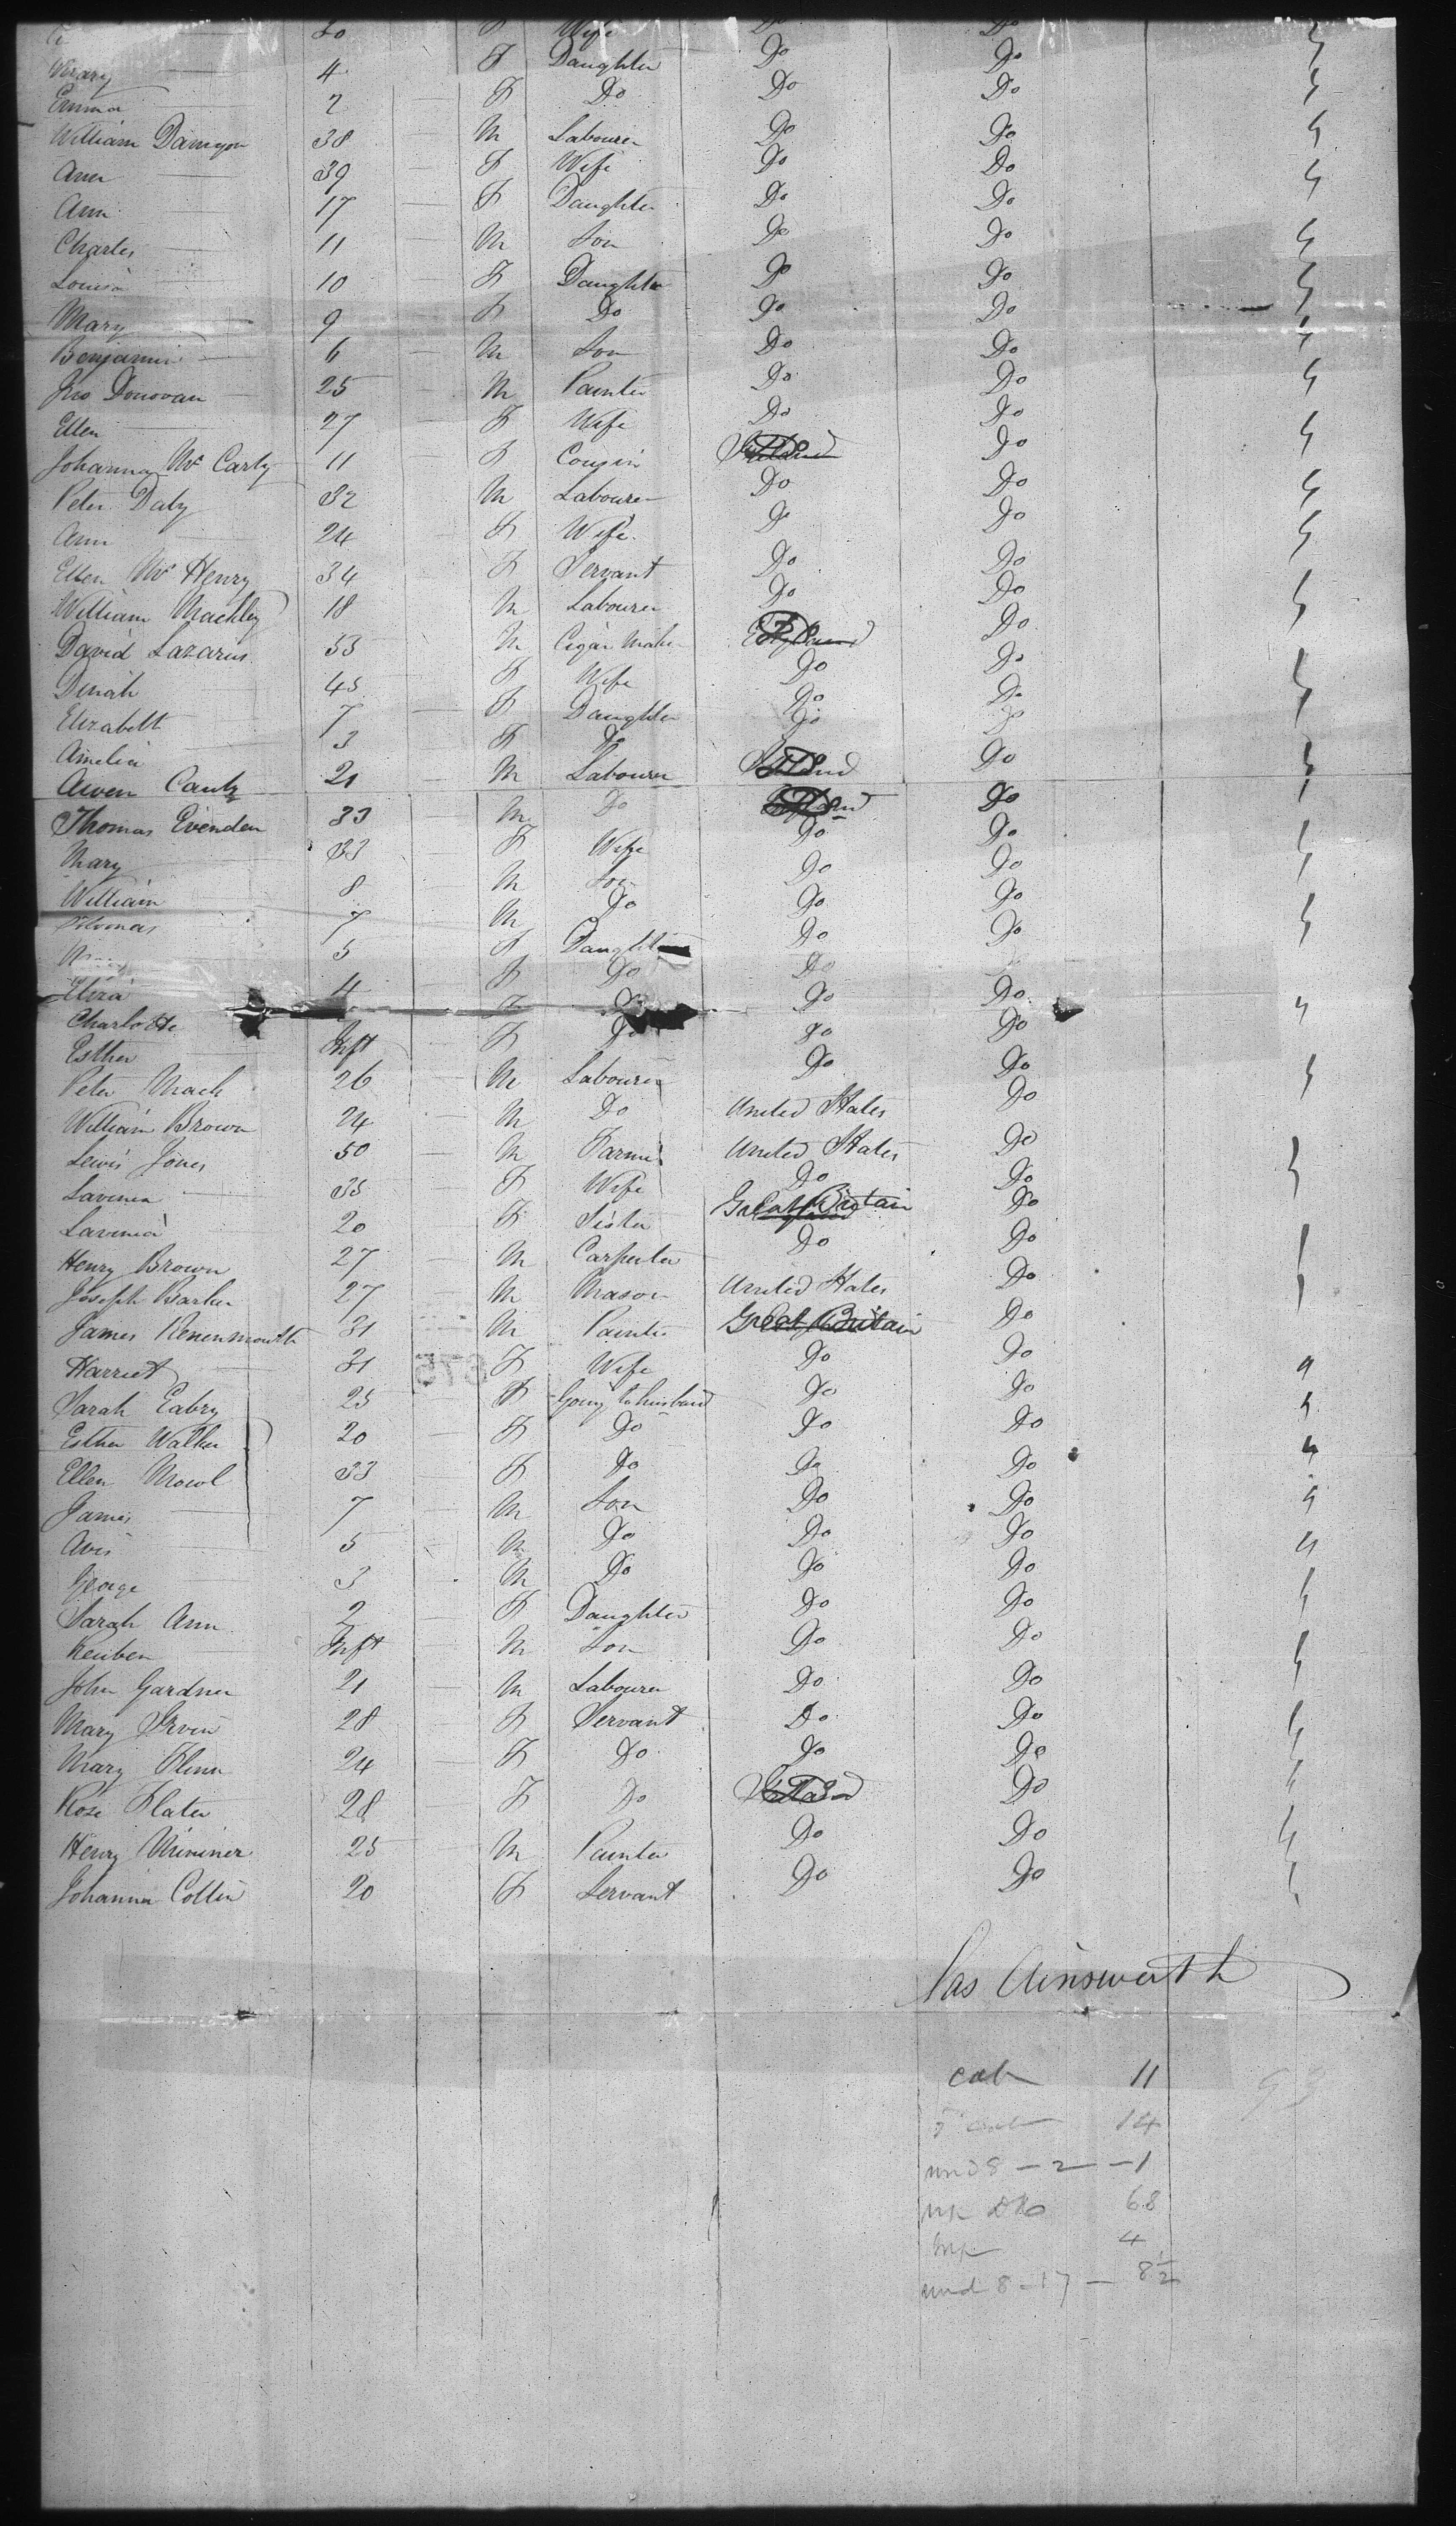 20 F Wife Do Do
Mary 4 F Daughter Do Do
Emma 2 F Do Do Do
William Damyon 38 M Labourer Do Do
Ann 39 F Wife Do Do
Ann 17 F Daughter Do Do
Charles 11 M Son Do Do
Louisa 10 F Daughter Do Do
Mary 9 F Do Do Do
Benjamin 6 M Son Do Do
Jno Donovan 25 M Painter Do Do
Ellen 27 F Wife Do Do
Johanna Mc Carty 11 F Cousin Do
Peter Daly 32 M Labourer Do Do
Ann 24 F Wife Do Do
Ellen Mc Henry 34 F Servant Do Do
William Mackley 18 M Labourer Do Do
David Lazarus 53 M Cigar Maker England Do
Dinah 45 F Wife Do Do
Elizabeth 7 F Daughter Do Do
Amelia 3 F Do Do Do
Owen Canty 21 M Labourer Do
Thomas Evenden 33 M Do Do
Mary 33 F Wife Do Do
William 8 M Son Do Do
Thomas 7 M Do Do Do
5 F Daughter Do Do
Eliza 4 F Do Do
Charlotte F Do Do
Esther Inft F Do Do Do
Peter Mack 26 M Labourer Do Do
William Brown 24 M Do United States Do
Lewis Jones 50 M Farmer United States Do
Lavinia 35 F Wife Do Do
Lavinia 20 F Sister Great Britain Do
Henry Brown 27 M Carpenter Do Do
Joseph Barker 27 M Mason United States Do
James 31 M Painter Great Britain Do
Harriet 31 F Wife Do Do
Sarah Eabry 25 F Going to husband Do Do
Esther Walker 20 F Do Do Do
Ellen Mowl 33 F Do Do Do
James 7 M Son Do Do
Avis 5 M Do Do Do
George 3 M Do Do Do
Sarah Ann 2 F Daughter Do Do
Reuben Inft M Son Do Do
John Gardner 21 M Labourer Do Do
Mary Irvin 28 F Servant Do Do
Mary Flinn 24 F Do Do Do
Rose Slater 28 F Do Do
Henry 25 M Painter Do Do
Johanna Collin 20 F Servant Do Do
Jas Ainsworth
cab 11
14
und 8 — 2 — 1
68
4
und 8 - 17 — 8½
93